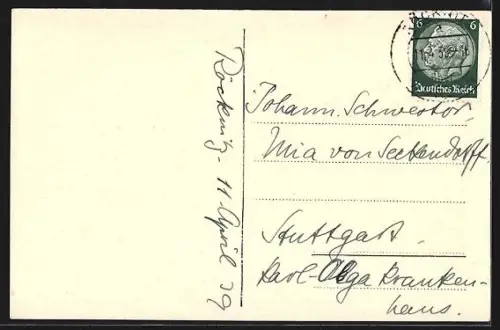 Röcknitz 11 April 39
6 6
Deutsches Reich
Johann. Schwester
Mia von Seckendorff.
Stuttgart.
Karl-Olga Kranken-
haus.